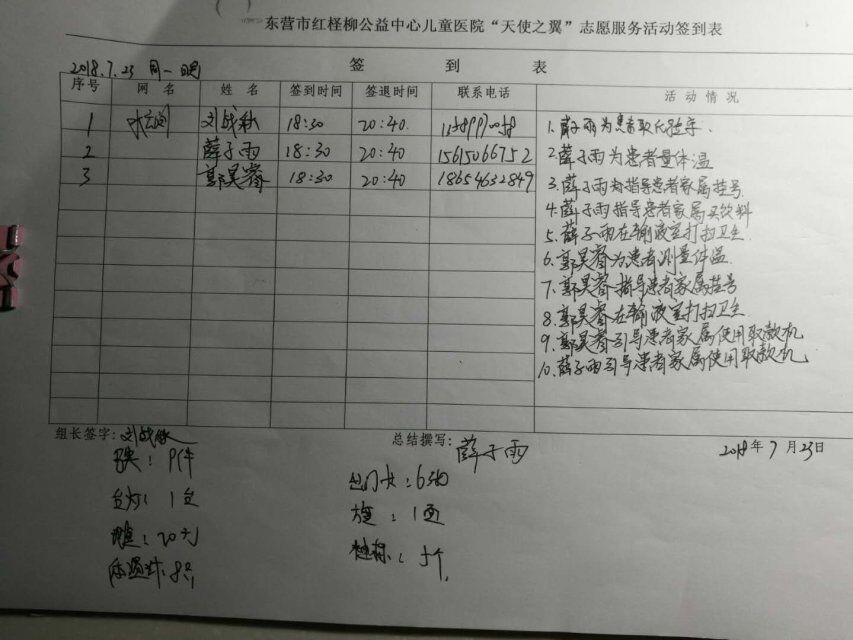 东营市红柽柳公益中心儿童医院“天使之翼”志愿服务活动签到表
2018.7.23 周一 晴
签 到 表
序号 网 名 姓 名 签到时间 签退时间 联系电话 活 动 情 况
1 刘战秋 18:30 20:40
2 薛子雨 18:30 20:40 15615066752
3 郭昊睿 18:30 20:40 18654632849
1. 薛子雨为患者取化验单.
2. 薛子雨为患者量体温
3. 薛子雨为指导患者家属挂号
4. 薛子雨指导患者家属买饮料
5. 薛子雨在输液室打扫卫生
6. 郭昊睿为患者测量体温
7. 郭昊睿指导患者家属挂号
8. 郭昊睿在输液室打扫卫生
9. 郭昊睿引导患者家属使用取款机
10. 薛子雨引导患者家属使用取款机
组长签字: 刘战秋 总结撰写: 薛子雨 2018年7月23日
出门卡:6张
台灯:1台 旗:1面
:20元
体温计:8只